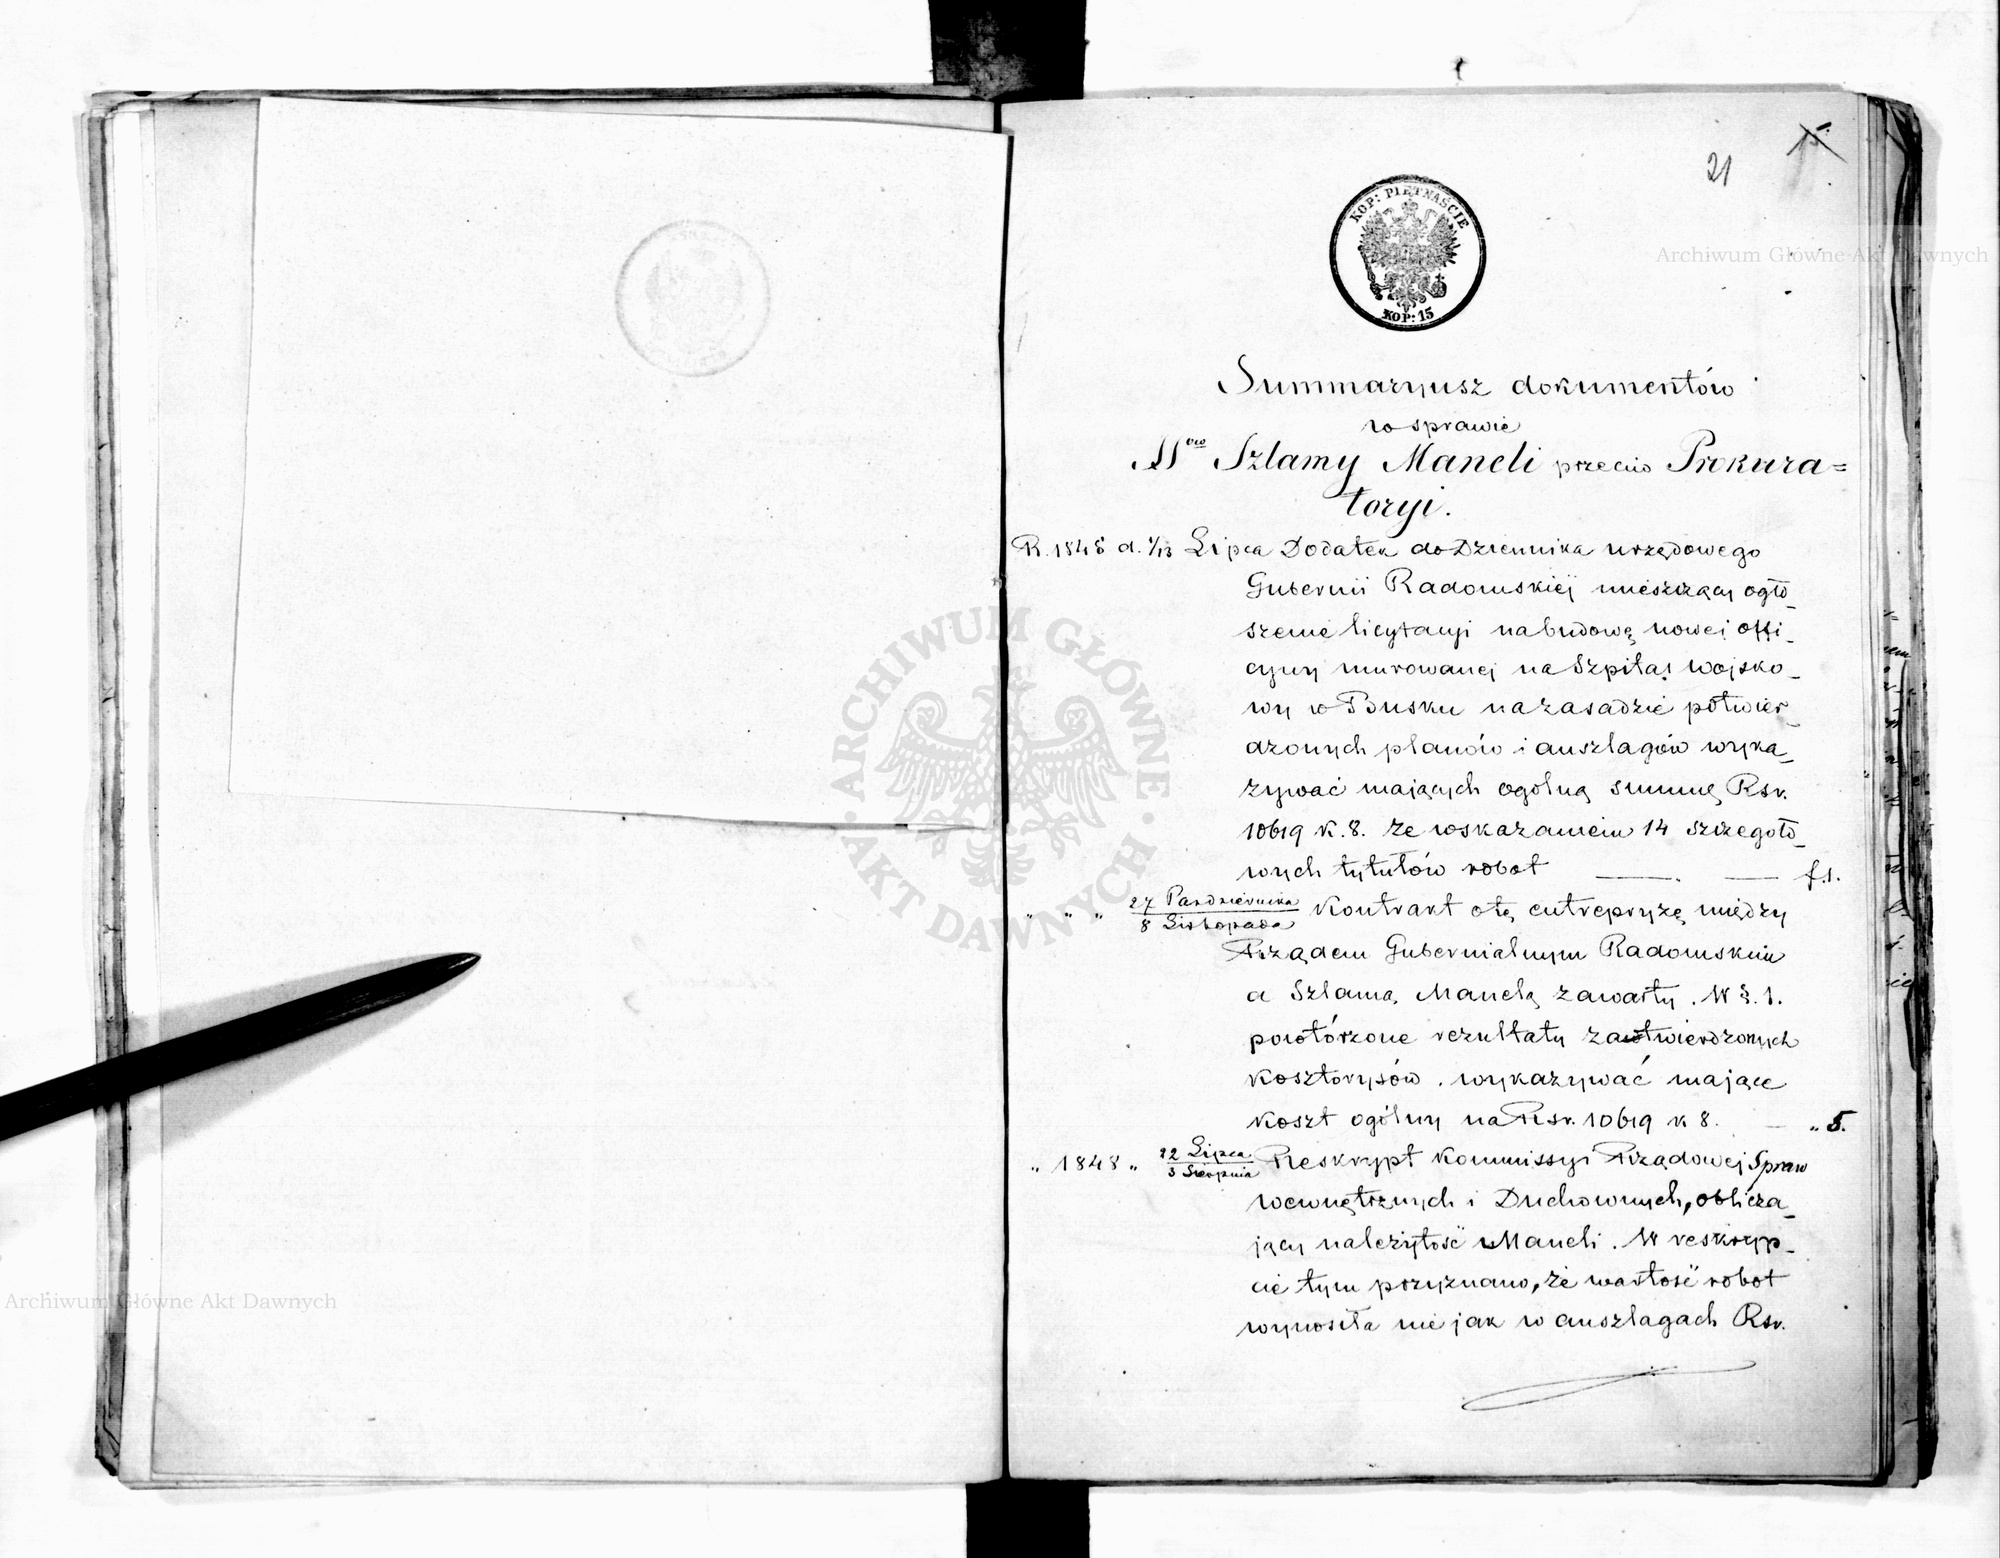 21
15.
KOP: PIĘTNAŚCIE
KOP: 15
Archiwum Główne Akt Dawnych
Summaryusz dokumentów
w sprawie
Szlamy Maneli przeciw Prokura=
toryi.
R. 1845 d. 1/13 Lipca Dodatek do Dziennika urzędowego
Gubernii Radomskiéj mieszczący ogło_
szenie licytacyi na budowę nowéj offi_
cyny murowanej na Szpital wojsko_
wy w Busku na zasadzie potwier_
dzonych planów i anszlagów wyka_
zywać mających ogólną summę Rsr.
10619 k. 8. ze wskazaniem 14 szczegóło_
wych tytułów robot f. 1.
" " " 27 Października / 8 Listopada Kontrakt o tę entrepryzę między
Rządem Gubernialnym Radomskim
a Szlamą Manelą zawarty. W §. 1.
powtórzone rezultaty zatwierdzonych
kosztorysów. wykazywać mające
koszt ogólny na Rsr. 10619 k 8. " 5.
" 1848 " 22 Lipca / 3 Sierpnia Reskrypt Kommissyi Rządowej Spraw
wewnętrznych i Duchownych, oblicza_
jący należytość Maneli. W reskryp_
cie tym przyznano, że wartość robot
wynosiła nie jak w anszlagach Rsr.
ARCHIWUM GŁÓWNE · AKT DAWNYCH ·
Archiwum Główne Akt Dawnych